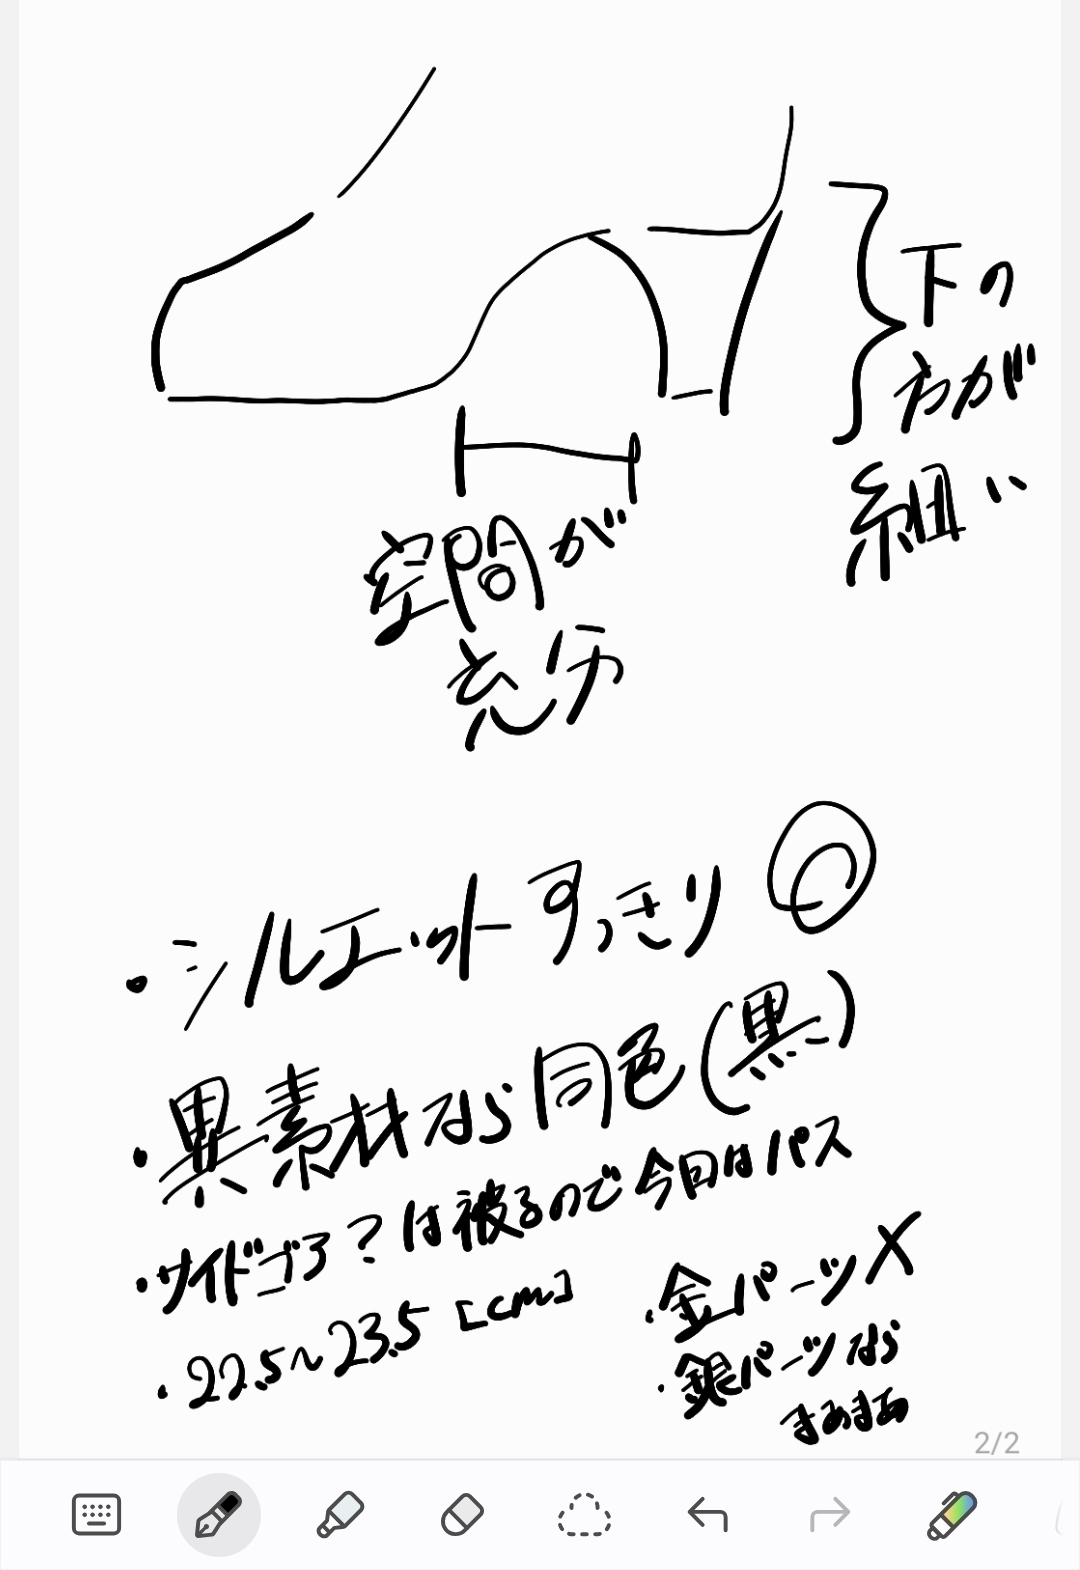 下の
方が
細い
空間が
充分
・シルエットすっきり◎
・異素材なら同色(黒)
・サイドゴア?は被るので今回はパス
・22.5~23.5[cm]
・金パーツ×
・銀パーツなら
まあまあ
2/2